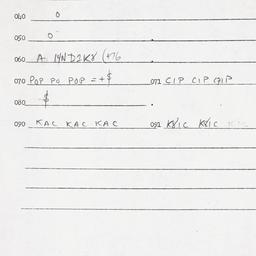 040 0
050 0
060 A
070 POP PO POP = + $ 071 CIP CIP CIP
080 $
090 KAC KAC KAC 091 K8IC K8IC